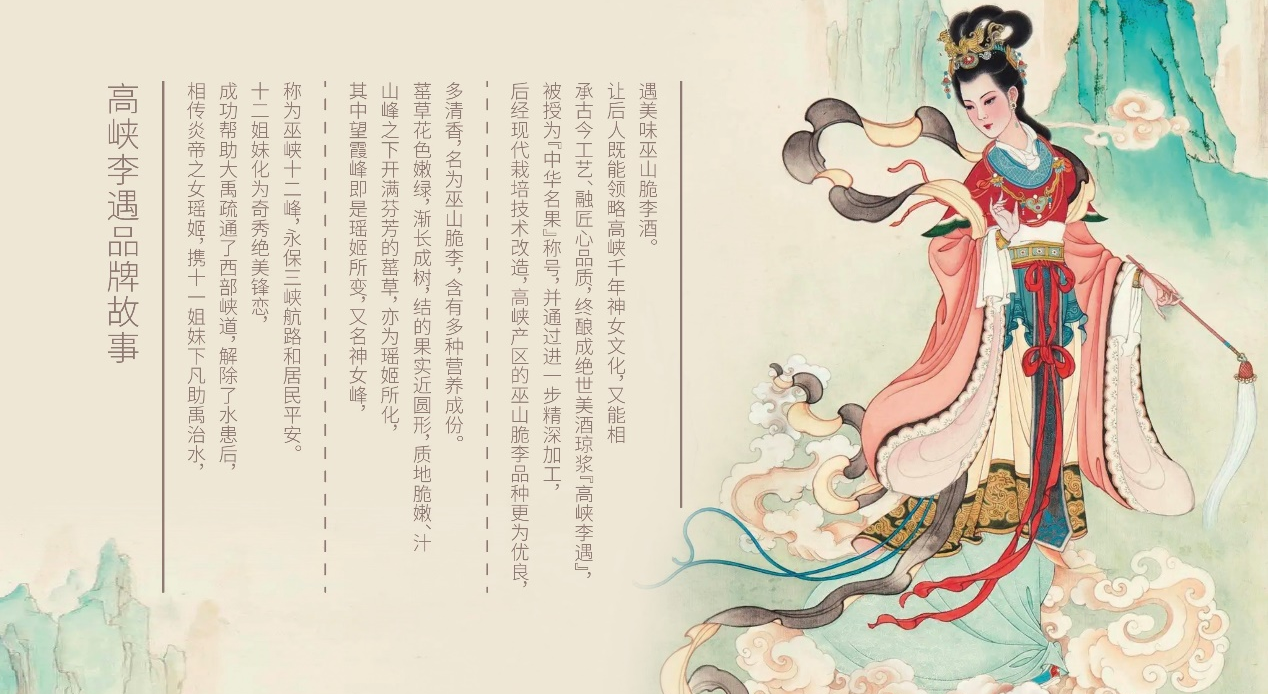 高峡李遇品牌故事
相传炎帝之女瑶姬，携十一姐妹下凡助禹治水，
成功帮助大禹疏通了西部峡道，解除了水患后，
十二姐妹化为奇秀绝美锋恋，
称为巫峡十二峰，永保三峡航路和居民平安。
其中望霞峰即是瑶姬所变，又名神女峰，
山峰之下开满芬芳的䔄草，亦为瑶姬所化，
䔄草花色嫩绿，渐长成树，结的果实近圆形，质地脆嫩、汁
多清香，名为巫山脆李，含有多种营养成份。
后经现代栽培技术改造，高峡产区的巫山脆李品种更为优良，
被授为『中华名果』称号，并通过进一步精深加工，
承古今工艺、融匠心品质，终酿成绝世美酒琼浆『高峡李遇』，
让后人既能领略高峡千年神女文化，又能相
遇美味巫山脆李酒。